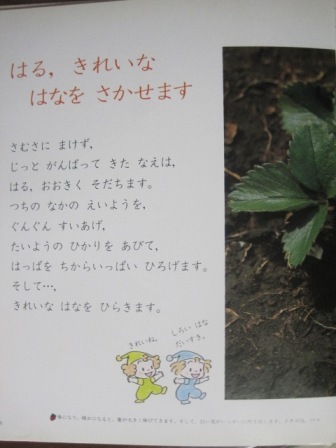 はる，きれいな
はなを さかせます
さむさに まけず，
じっと がんばって きた なえは，
はる，おおきく そだちます。
つちの なかの えいようを，
ぐんぐん すいあげ，
たいようの ひかりを あびて，
はっぱを ちからいっぱい ひろげます。
そして…，
きれいな はなを ひらきます。
きれいね。
しろい はな
だいすき。